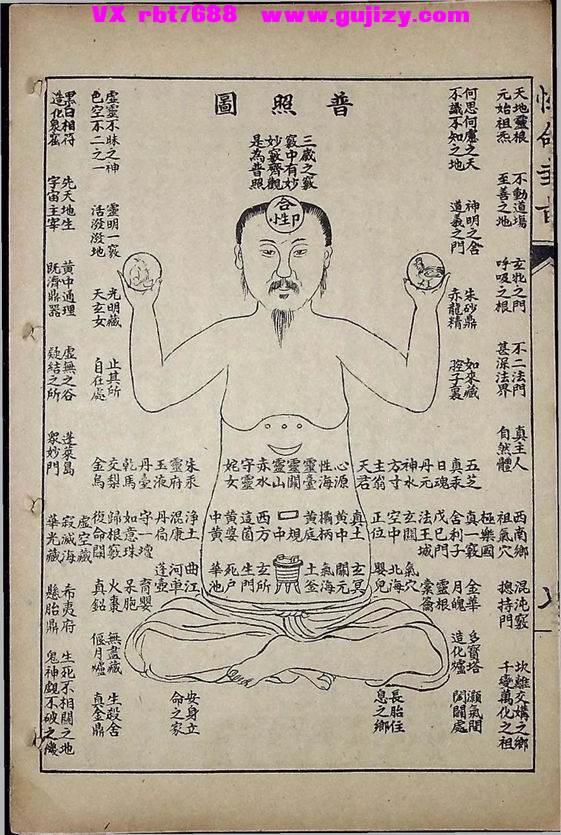 VX rbt7688 www.gujizy.com
性命圭旨
普照圖
天地靈根
元始祖炁
不動道場
至善之地
玄牝之門
呼吸之根
不二法門
甚深法界
真主人
自然體
西南鄉
祖氣穴
極樂國
混沌竅
摠持門
坎離交媾之鄉
千變萬化之祖
何思何慮之天
不識不知之地
神明之舍
道義之門
朱砂鼎
赤龍精
如來藏
腔子裏
三戚之竅
竅中有妙
妙竅齊觀
是為普照
合
性
虛靈不昧之神
色空不二之一
靈明一竅
活潑潑地
光明藏
天玄女
止其所
自在處
黑白相符
造化泉窟
先天地生
宇宙主宰
黄中通理
既濟鼎器
虛無之谷
凝結之所
蓬萊島
衆妙門
虛空藏
寂滅海
華光藏
希夷府
懸胎鼎
生死不相關之地
鬼神覷不破之機
五芝
真汞
日魂
丹元
神水
方寸
主翁
天君
心源
性海
靈臺
靈關
靈山
赤水
守靈
姹女
朱汞
靈府
玉液
丹臺
乾馬
交梨
金烏
真一竅
舍利子
戊己門
法王城
玄關
空中
正位
真土
黄中
欛柄
黄庭
規中
西方
這箇
黄婆
中黄
浄土
混康
丹扃
守一壇
如意珠
歸根竅
復命關
金華
月魄
靈根
橐籥
氣穴
北海
嬰兒
玄冥
關元
氣海
土釜
玄所
生門
死戶
華池
曲江
河車
蓬壺
育嬰
呆胞
火棗
真鉛
多寶塔
造化爐
灝氣門
闔闢處
長胎住
息之鄉
安身立
命之家
無盡藏
偃月爐
生殺舍
真金鼎